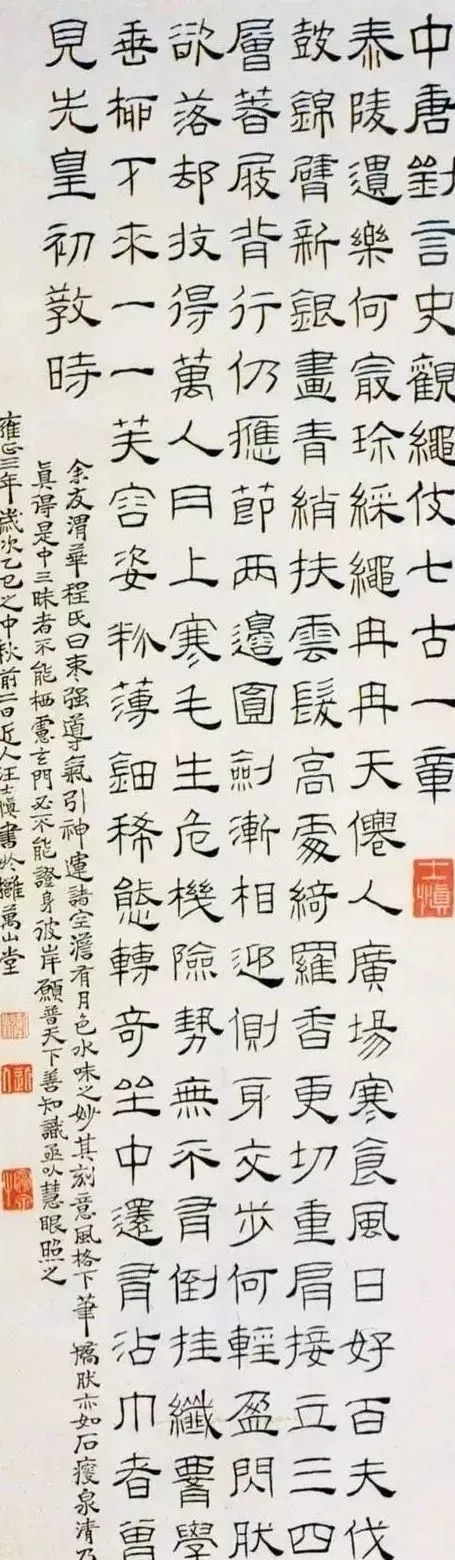 中唐劉言史觀繩伎七古一章
士慎
泰陵遺樂何最珍綵繩冉冉天僊人廣場寒食風日好百夫伐
鼓錦臂新銀畫青綃扶雲髮高處綺羅香更切重肩接立三四
層著屐背行仍應節兩邊圓劍漸相迎側身交步何輕盈閃肰
欲落却扷得萬人冃上寒毛生危機險勢無不有倒挂纖腰學
垂柳下來一一芙容姿粉薄鈿稀態轉奇坐中還有沾巾者曾
見先皇初教時
余友渭華程氏曰束强導氣引神運諸空澹有月色水味之妙其刻意風格下筆肰亦如石瘦泉清乃
真得是中三昧者不能栖玄門必不能證身彼岸願普天下善知識亟以慧眼照之
雍正三年歲次乙巳之中秋前二日近人汪士慎書於萬山堂